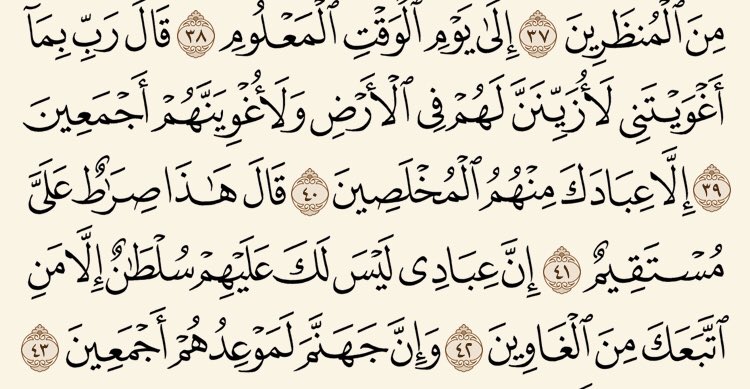 مِنَ ٱلۡمُنظَرِينَ ٣٧ إِلَىٰ يَوۡمِ ٱلۡوَقۡتِ ٱلۡمَعۡلُومِ ٣٨ قَالَ رَبِّ بِمَآ
أَغۡوَيۡتَنِي لَأُزَيِّنَنَّ لَهُمۡ فِي ٱلۡأَرۡضِ وَلَأُغۡوِيَنَّهُمۡ أَجۡمَعِينَ
٣٩ إِلَّا عِبَادَكَ مِنۡهُمُ ٱلۡمُخۡلَصِينَ ٤٠ قَالَ هَٰذَا صِرَٰطٌ عَلَيَّ
مُسۡتَقِيمٌ ٤١ إِنَّ عِبَادِي لَيۡسَ لَكَ عَلَيۡهِمۡ سُلۡطَٰنٌ إِلَّا مَنِ
ٱتَّبَعَكَ مِنَ ٱلۡغَاوِينَ ٤٢ وَإِنَّ جَهَنَّمَ لَمَوۡعِدُهُمۡ أَجۡمَعِينَ ٤٣